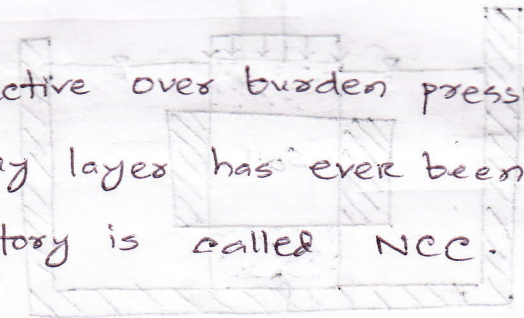 ctive over burden press
y layer has ever been
tory is called NCC.